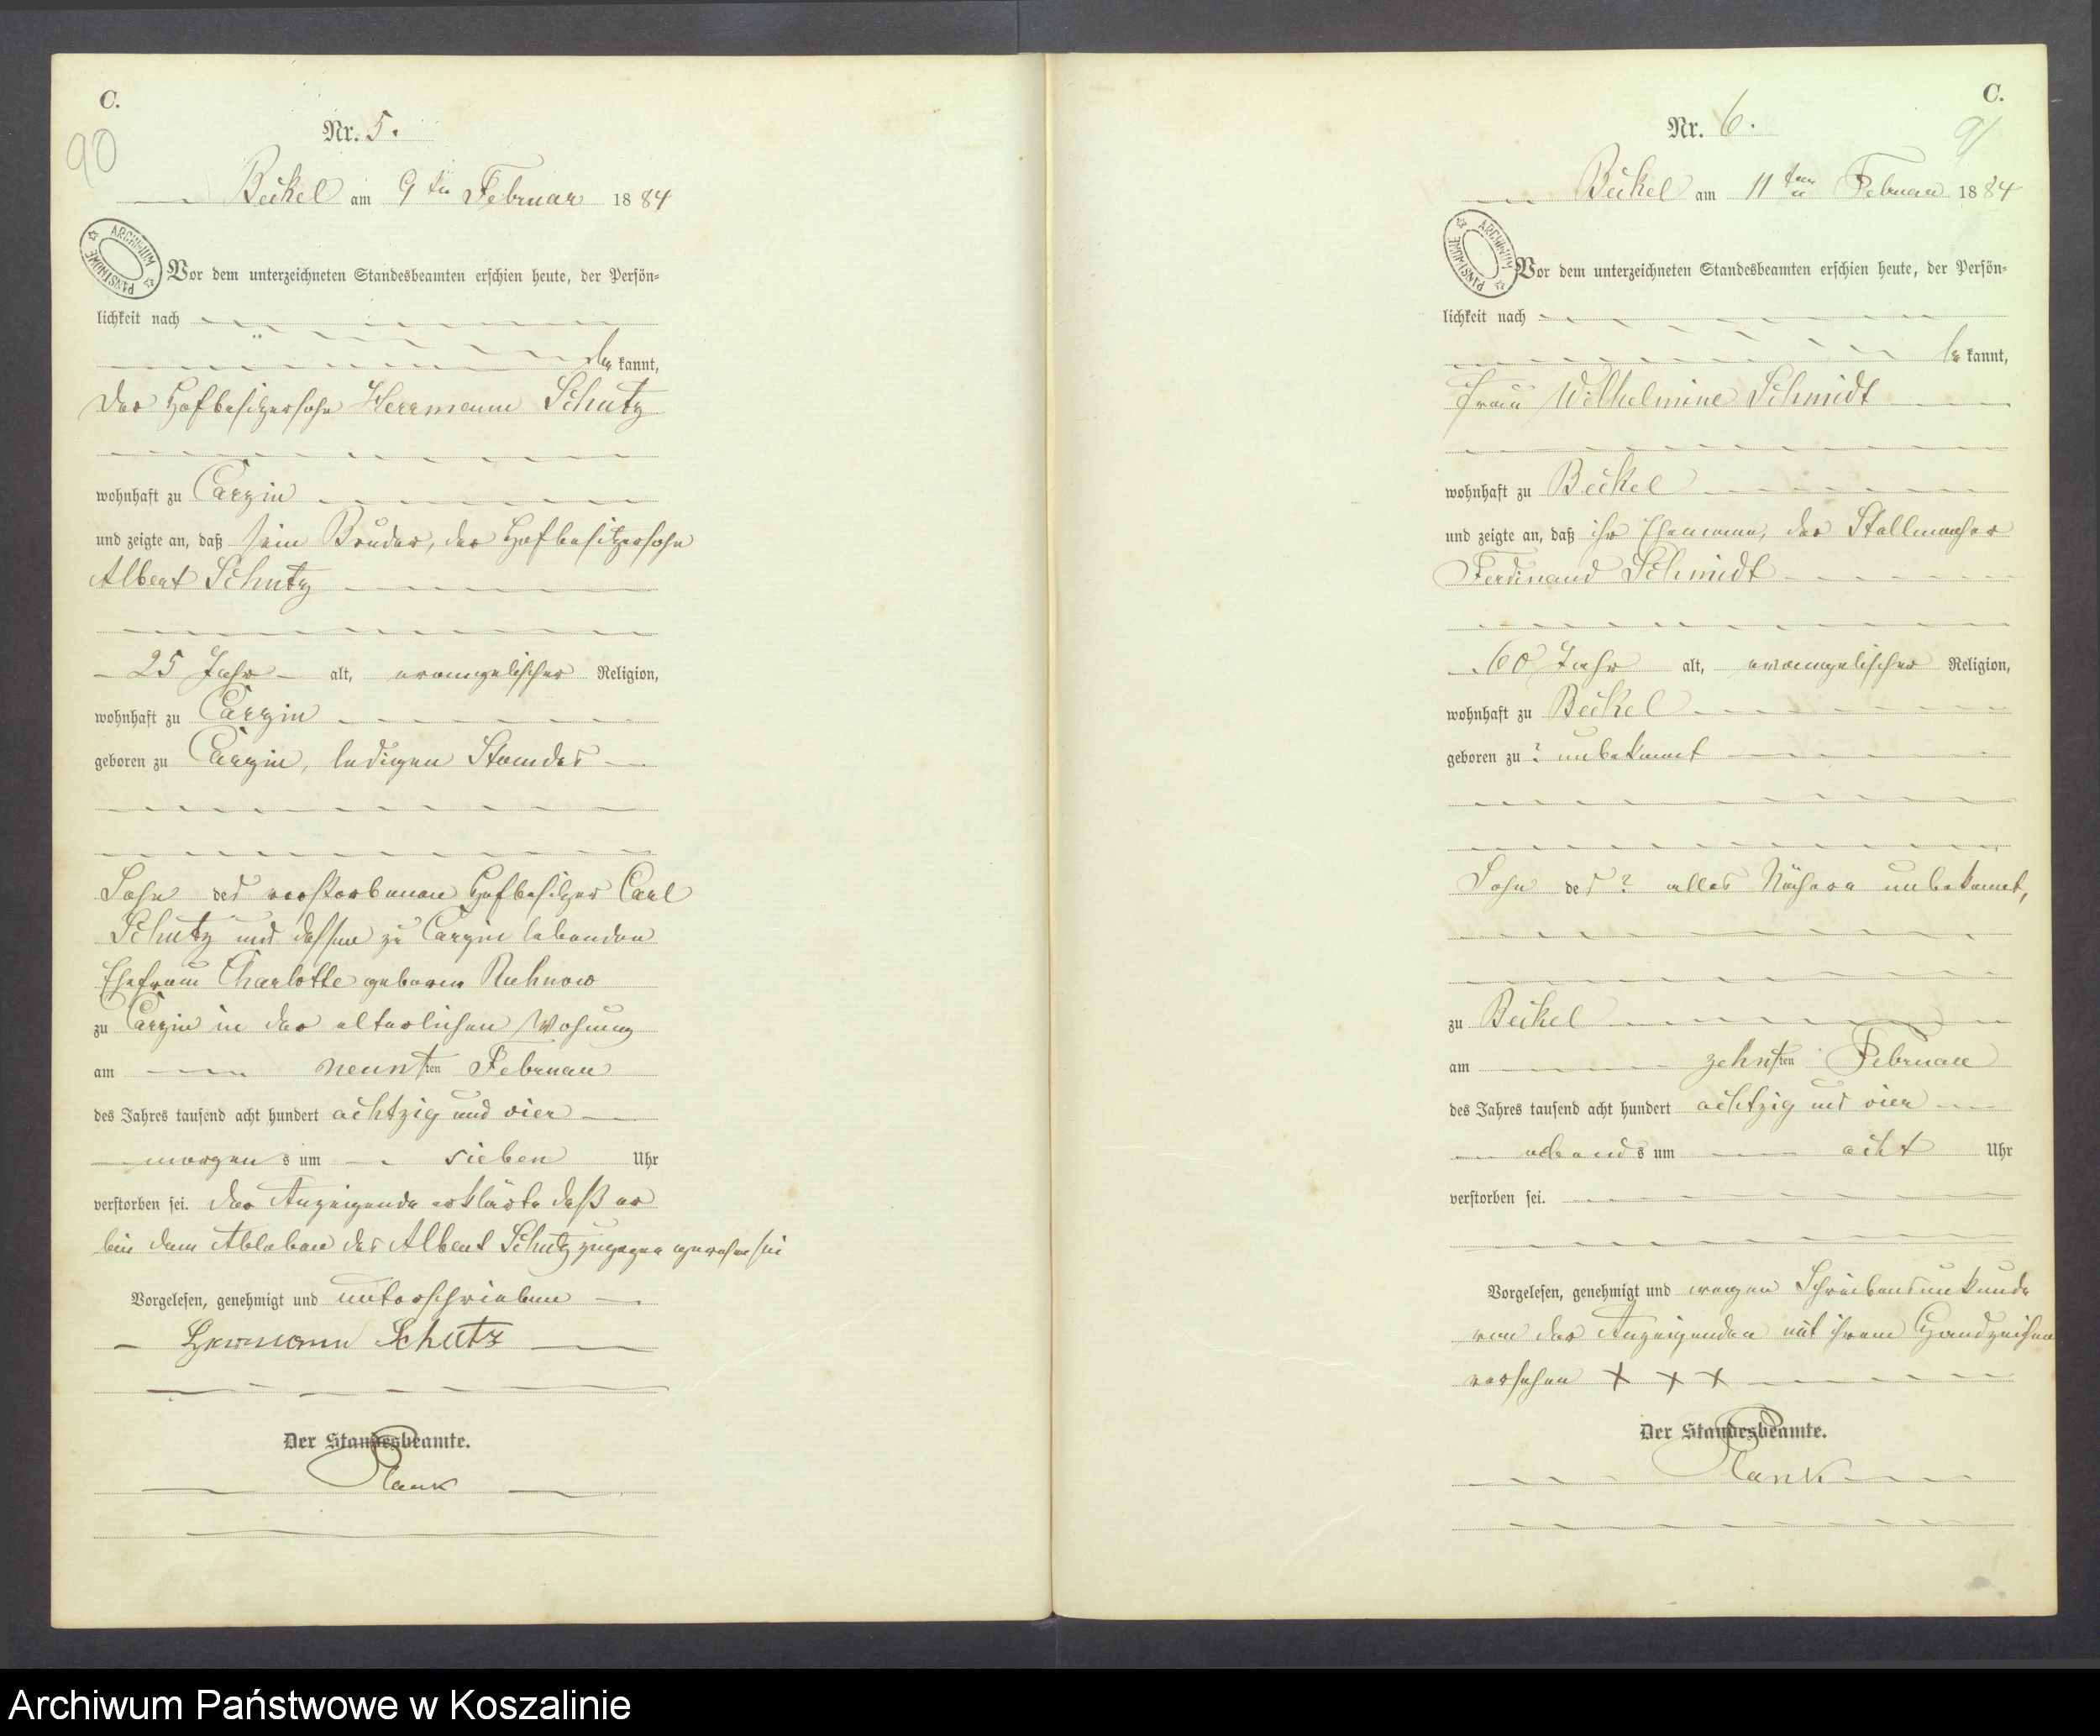 C.
90
Nr. 5.
Beckel am 9ten Februar 1884
ARCHIWUM PAŃSTWOWE
Vor dem unterzeichneten Standesbeamten erschien heute, der Persön-
lichkeit nach
be kannt,
der Hofbesitzersohn Herrmann Schutz
wohnhaft zu Carzin
und zeigte an, daß sein Bruder, der Hofbesitzersohn
Albert Schutz
25 Jahr alt, evangelischer Religion,
wohnhaft zu Carzin
geboren zu Carzin, ledigen Standes
Sohn des verstorbenen Hofbesitzer Carl
Schutz und dessen zu Carzin lebenden
Ehefrau Charlotte geboren Ruhnow
zu Carzin in der elterlichen Wohnung
am neunten Februar
des Jahres tausend acht hundert achtzig und vier
morgens um sieben Uhr
verstorben sei. Der Anzeigende erklärte daß er
bei dem Ableben des Albert Schutz zugegen gewesen sei
Vorgelesen, genehmigt und unterschrieben
Hermann Schutz
Der Standesbeamte.
Plank
C.
91
Nr. 6.
Beckel am 11ten Februar 1884
ARCHIWUM PAŃSTWOWE
Vor dem unterzeichneten Standesbeamten erschien heute, der Persön-
lichkeit nach
be kannt,
Frau Wilhelmine Schmidt
wohnhaft zu Beckel
und zeigte an, daß ihr Ehemann, der Stellmacher
Ferdinand Schmidt
60 Jahr alt, evangelischer Religion,
wohnhaft zu Beckel
geboren zu ? unbekannt
Sohn des ? alles Nähere unbekannt,
zu Beckel
am zehnten Februar
des Jahres tausend acht hundert achtzig und vier
abends um acht Uhr
verstorben sei.
Vorgelesen, genehmigt und wegen Schreibensunkunde
von der Anzeigenden mit ihrem Handzeichen
versehen + + +
Der Standesbeamte.
Plank
Archiwum Państwowe w Koszalinie